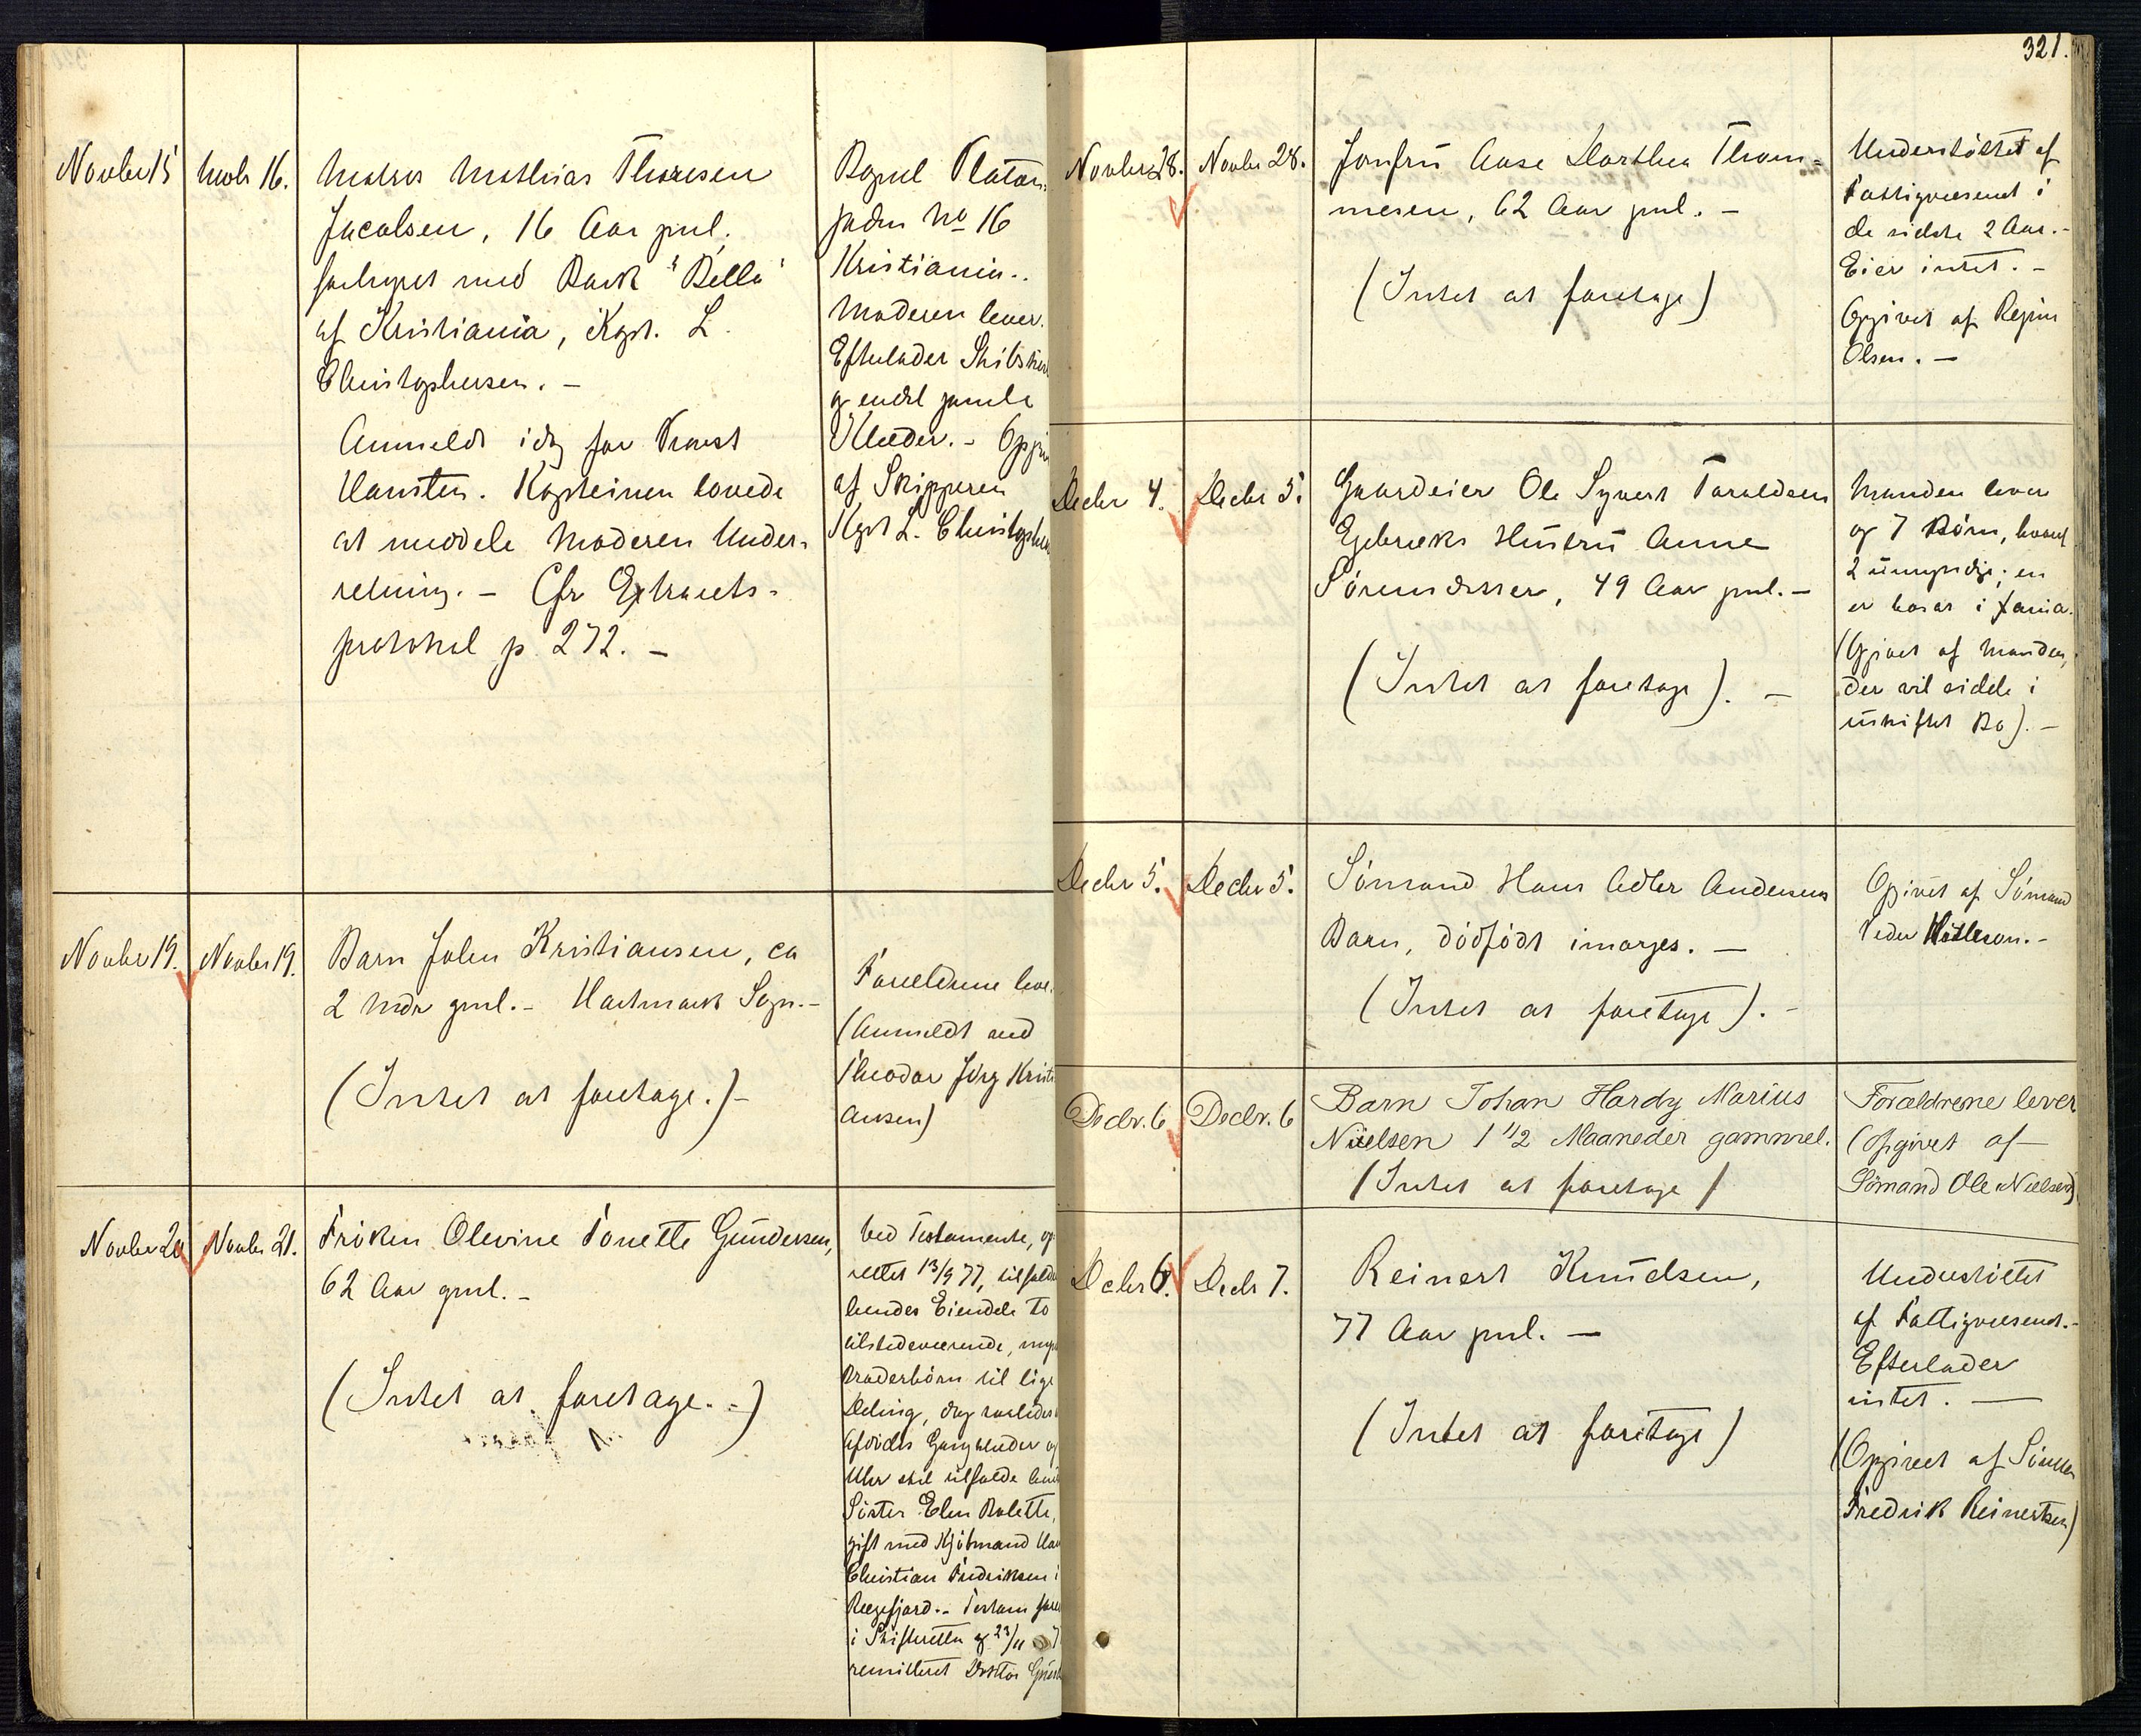 Novber 15
Novbr 16.
Matros Mathias Thoresen
Jacobsen, 16 Aar gml.
forlyst med Bark "Bella"
af Kristiania, Kapt. L.
Christophersen. –
Anmeldt idag for Provst
Hansten. Kapteinen lovede
at meddele Moderen Under-
retning. – Cfr Extrarets-
protokol p. 272. –
Platou
gaden No 16
Kristiania.
Moderen lever.
Efterlader Skibs
og endel gamle
Klæder. –
af Skipperen
Kapt L. Christophers
Novber 19.
Novber 19.
Barn John Kristiansen, ca
2 Mdr gml. – Hartmark Sogn. –
(Intet at foretage.) –
Forældrene leve.
(Anmeldt ved
Theodor Jörg Kristi
ansen)
Novber 20
Novbr 21.
Fröken Olevine Tonette Gundersen,
62 Aar gml. –
(Intet at foretage. –)
Ved Testamente, op
rettet 13/9 77, tilfalde
hendes Eiendele to
tilstedeværende, myn
Broderbörn til lige
Deling, dog saaledes
Afdödes Gangklæder og
Uhr skal tilfalde hend
Söster Elen Bolette,
gift med Kjöbmand
Christian Fredriksen i
Rægefjord. – Testam
i Skifteretten 23/11
remitteret Doktor
321.
Novbr 28.
Novbr 28.
Jomfru Aase Dorthea Thom-
mesen, 62 Aar gml. –
(Intet at foretage)
Understöttet af
Fattigvæsenet i
de sidste 2 Aar. –
Eier intet. –
Opgivet af Regine
Olsen. –
Decbr 4.
Decbr 5.
Gaardeier Ole Syvert Taraldsen
Egebræks Hustru Anne
Sörensdatter, 49 Aar gml. –
(Intet at foretage). –
Manden lever
og 7 Börn, hvoraf
2 umyndige; en
er bosat i
(Opgivet af Manden,
der vil sidde i
uskiftet Bo). –
Decbr 5.
Decbr 5.
Sömand Hans Adler Andersens
Barn, dödfödt imorges. –
(Intet at foretage). –
Opgivet af Sömand
Peder
Decbr. 6
Decbr. 6
Barn Johan Hardy Marius
Nielsen 1 1/2 Maaneder gammel.
(Intet at foretage)
Forældrene lever
(Opgivet af
Sömand Ole Nielsen)
Decbr 6.
Decbr 7.
Reinert Knudsen,
77 Aar gml. –
(Intet at foretage)
Understöttet
af Fattigvæsenet. –
Efterlader
intet. –
(Opgivet af Sönnen
Fredrik Reinertsen)